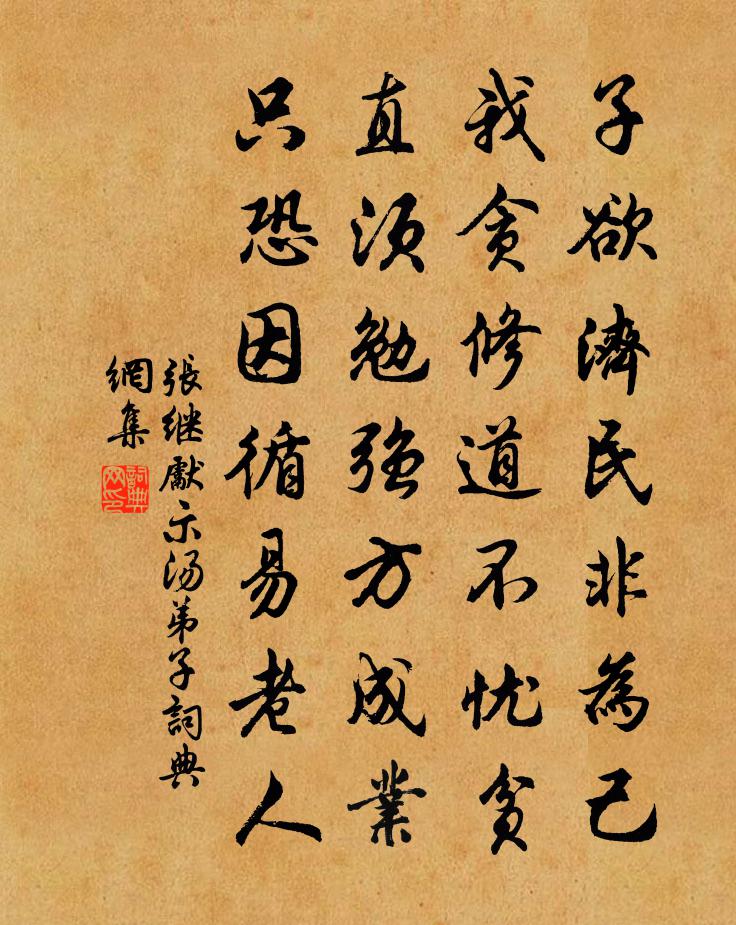 子欲濟民非為己
我貪修道不忧貧
直须勉強方成業
只恐因循易老人
張继獻示汤弟子詞典
網集
詞典
网印